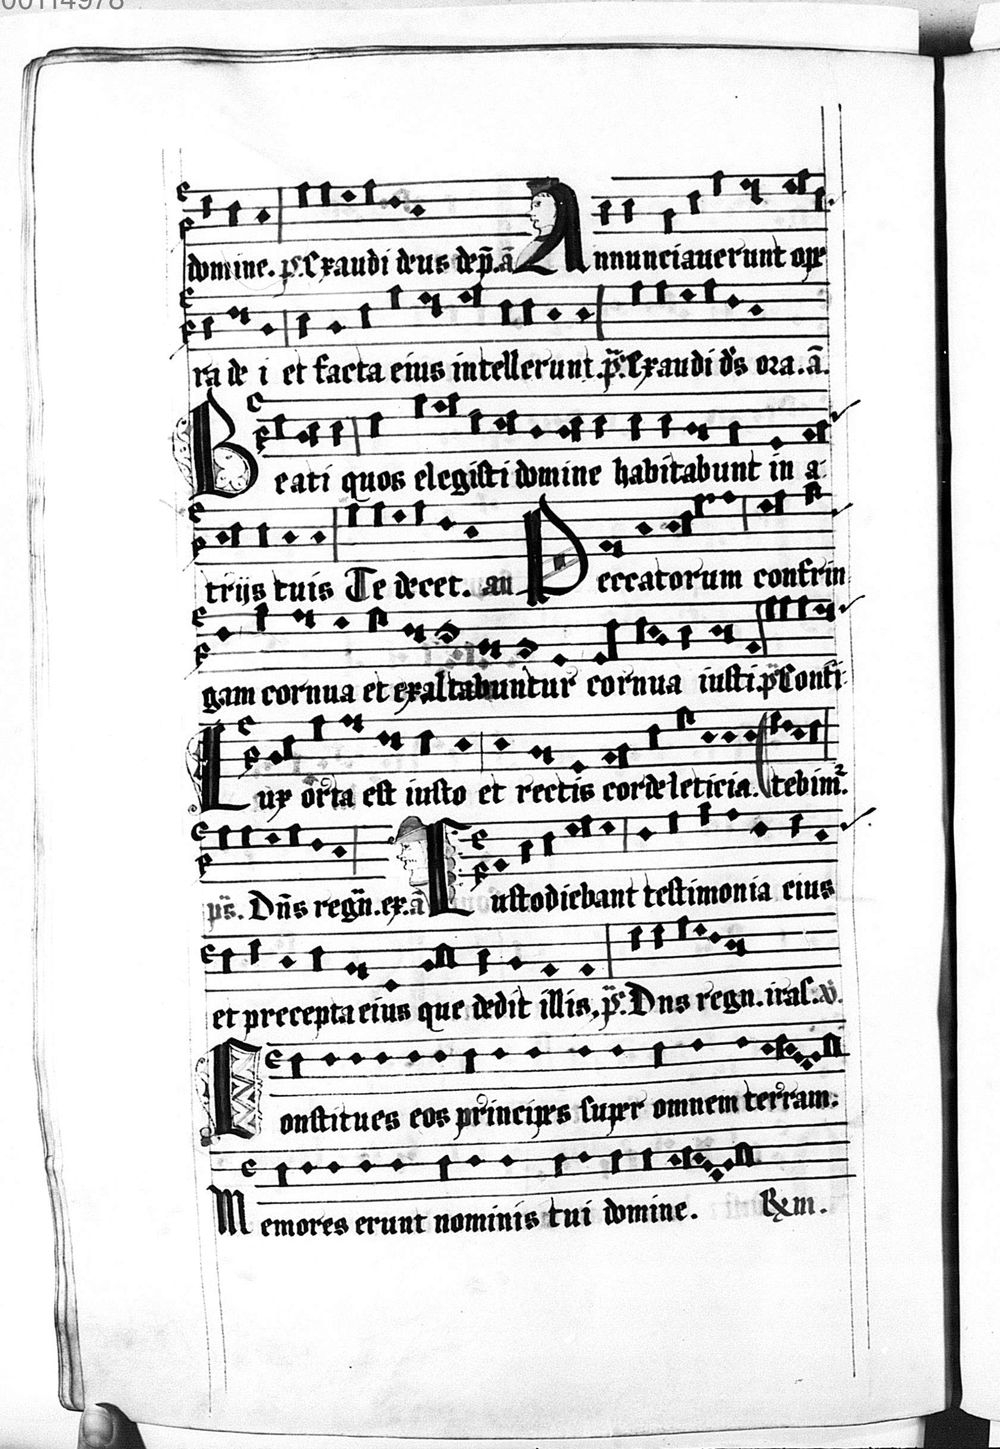 00114978
domine. p̄s. Exaudi deus dep̄. ā Annunciauerunt ope
ra de i et facta eius intellerunt. p̄s. Exaudi ds ora. ā.
Beati quos elegisti domine habitabunt in a
trijs tuis Te decet. an Peccatorum confrin
gam cornua et exaltabuntur cornua iusti. p̄s Confi
Lux orta est iusto et rectis corde leticia. (tebim².
p̄s. Dn̄s regn̄. ex. ā Custodiebant testimonia eius
et precepta eius que dedit illis, p̄s. Dns regn. iras. v̄.
Constitues eos principes super omnem terram:
Memores erunt nominis tui domine. Rxm.